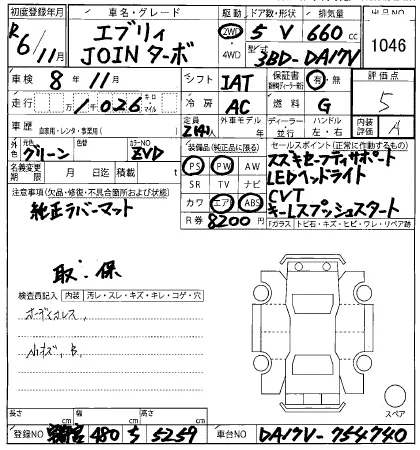 初度登録年月 車名・グレード 駆動 ドア数・形状 排気量 出品NO
R6/11月 エブリィ JOINターボ 2WD ・4WD 5 V 660 cc 1046
型式 3BD-DA17V
車検 8年 11月 シフト IAT 保証書 有・無 評価点
走行 1,026 キロ・マイル 冷房 AC 燃料 G 5
車歴 自家用・レンタ・事業用( ) 定員 2(4)人 外車モデル 年 ディーラー 並行 ハンドル 左・右 内装評価 A
外色 元色 グリーン 色替 カラーNO ZVD
名義変更期限 月 日迄 積載 t
装備品(純正品に限る) セールスポイント(正常に作動するもの)
PS PW AW スズキセーフティサポート
SR TV ナビ LEDヘッドライト
カワ エアB ABS CVT
キーレスプッシュスタート
R券 8200円 Fガラス トビ石・キズ・ヒビ・ワレ・リペア跡
注意事項(欠品・修復・不具合箇所および状態)
純正ラバーマット
取・保
検査員記入 内装 汚レ・スレ・キズ・キレ・コゲ・穴
小キズ、
スペア
長さ cm 幅 cm 高さ cm
登録NO 480 ち 5259 車台NO DA17V-754740